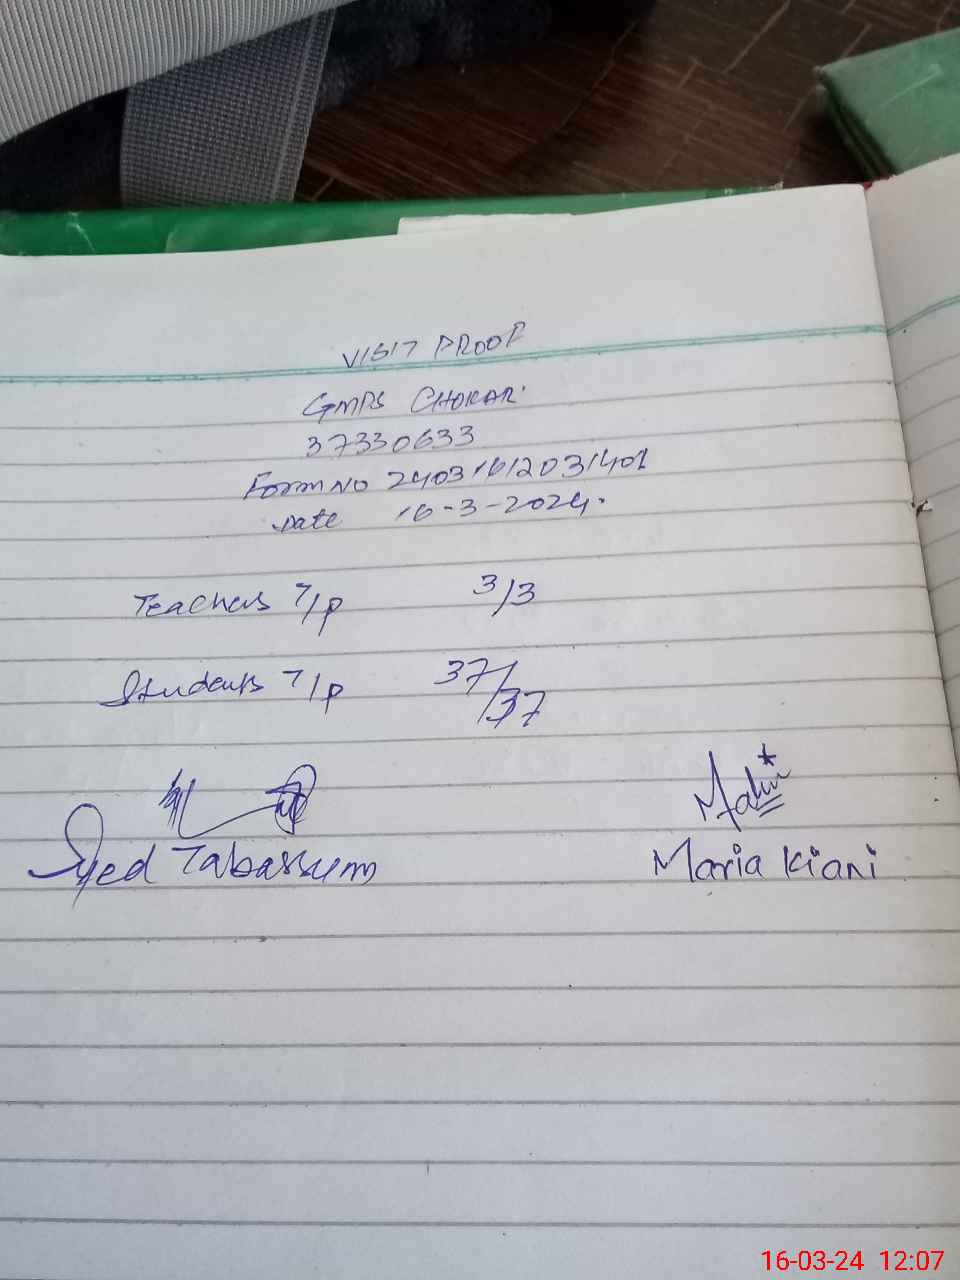 VISIT PROOF
GMPS CHOKAR
37330633
Form No 24031612031401
Date 16-3-2024.
Teachers T/P 3/3
Students T/P 37/37
Syed Tabassum
Maria Kiani
16-03-24 12:07